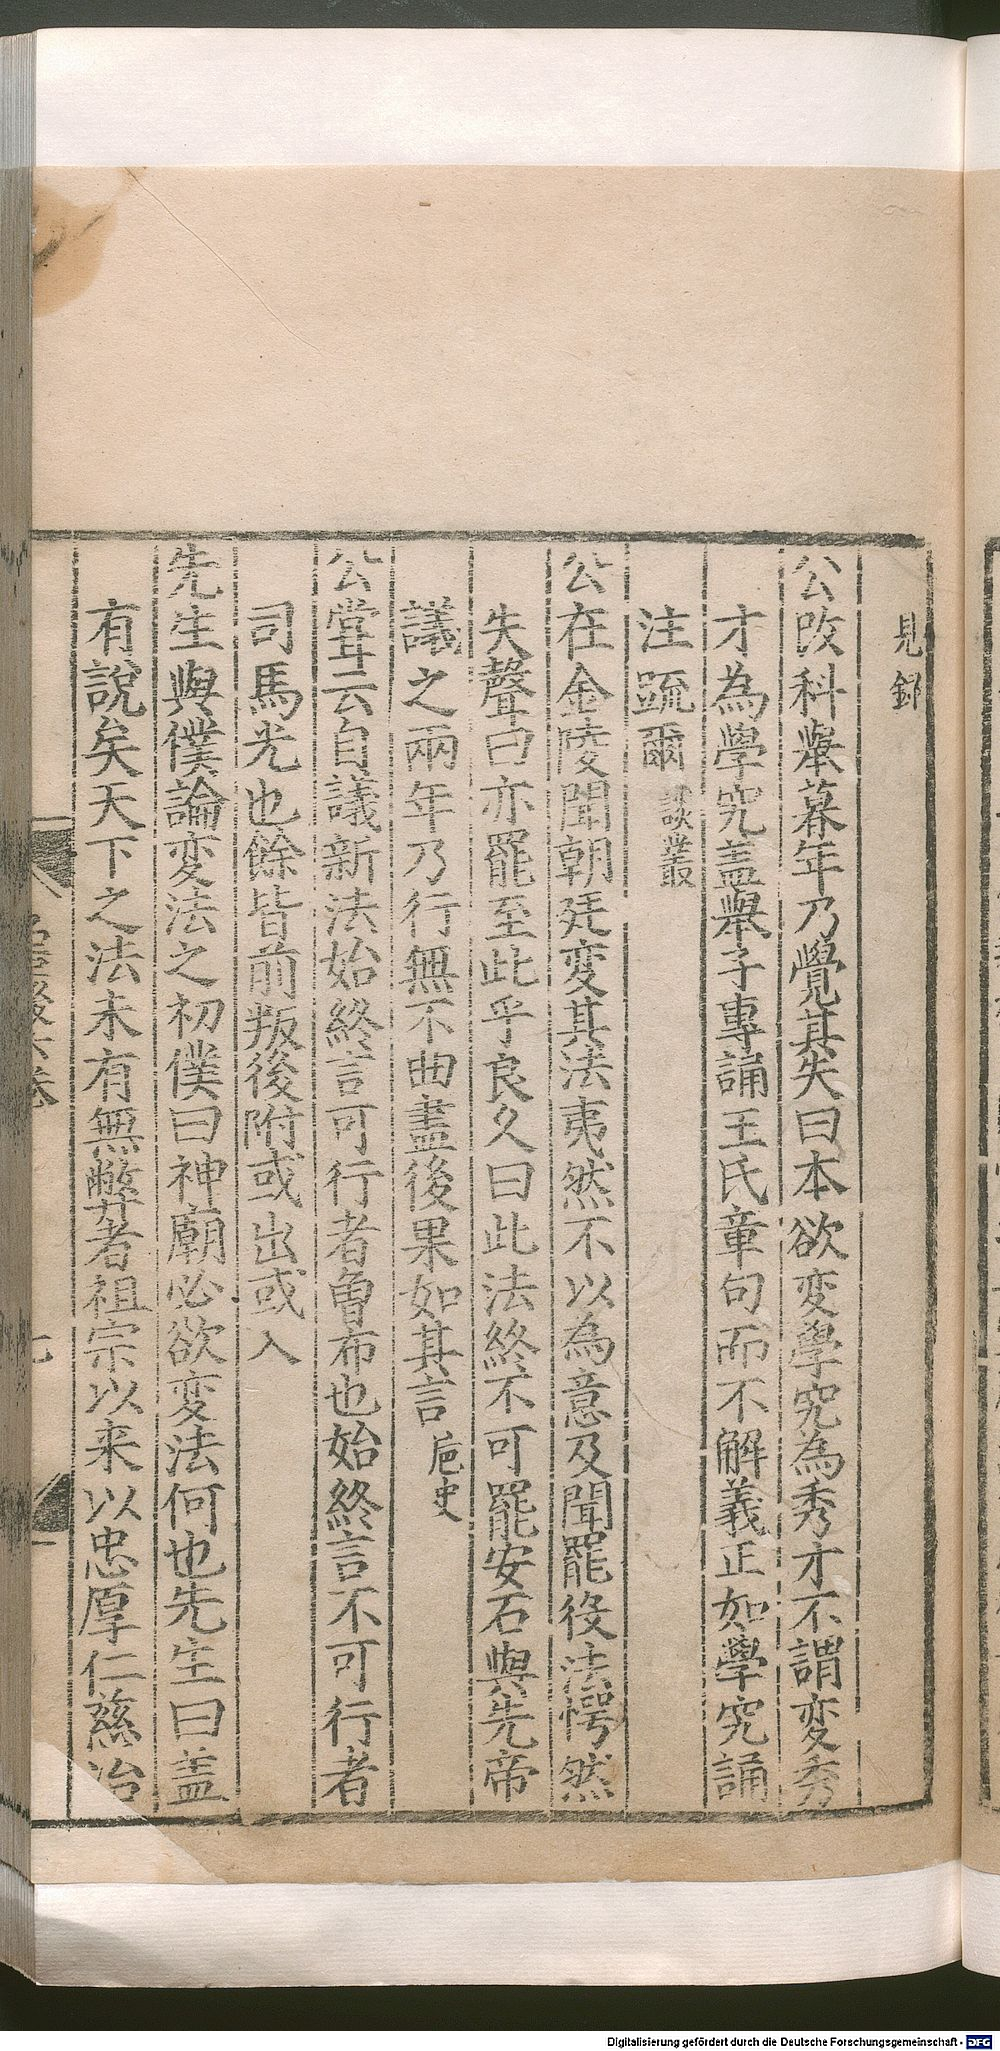 見錄
公改科舉暮年乃覺其失曰本欲変學究為秀才不謂変秀
才為學究盖舉子專誦王氏章句而不解義正如學究誦
注䟽爾 談叢
公在金陵聞朝廷変其法夷然不以為意及聞罷役法愕然
失聲曰亦罷至此乎良久曰此法終不可罷安石與先帝
議之兩年乃行無不曲盡後果如其言 巵史
公甞云自議新法始終言可行者曾布也始終言不可行者
司馬光也餘皆前叛後附或出或入
先生與僕論変法之初僕曰神廟必欲変法何也先生曰盖
有說矣天下之法未有無弊者祖宗以来以忠厚仁慈治
Digitalisierung gefördert durch die Deutsche Forschungsgemeinschaft - DFG